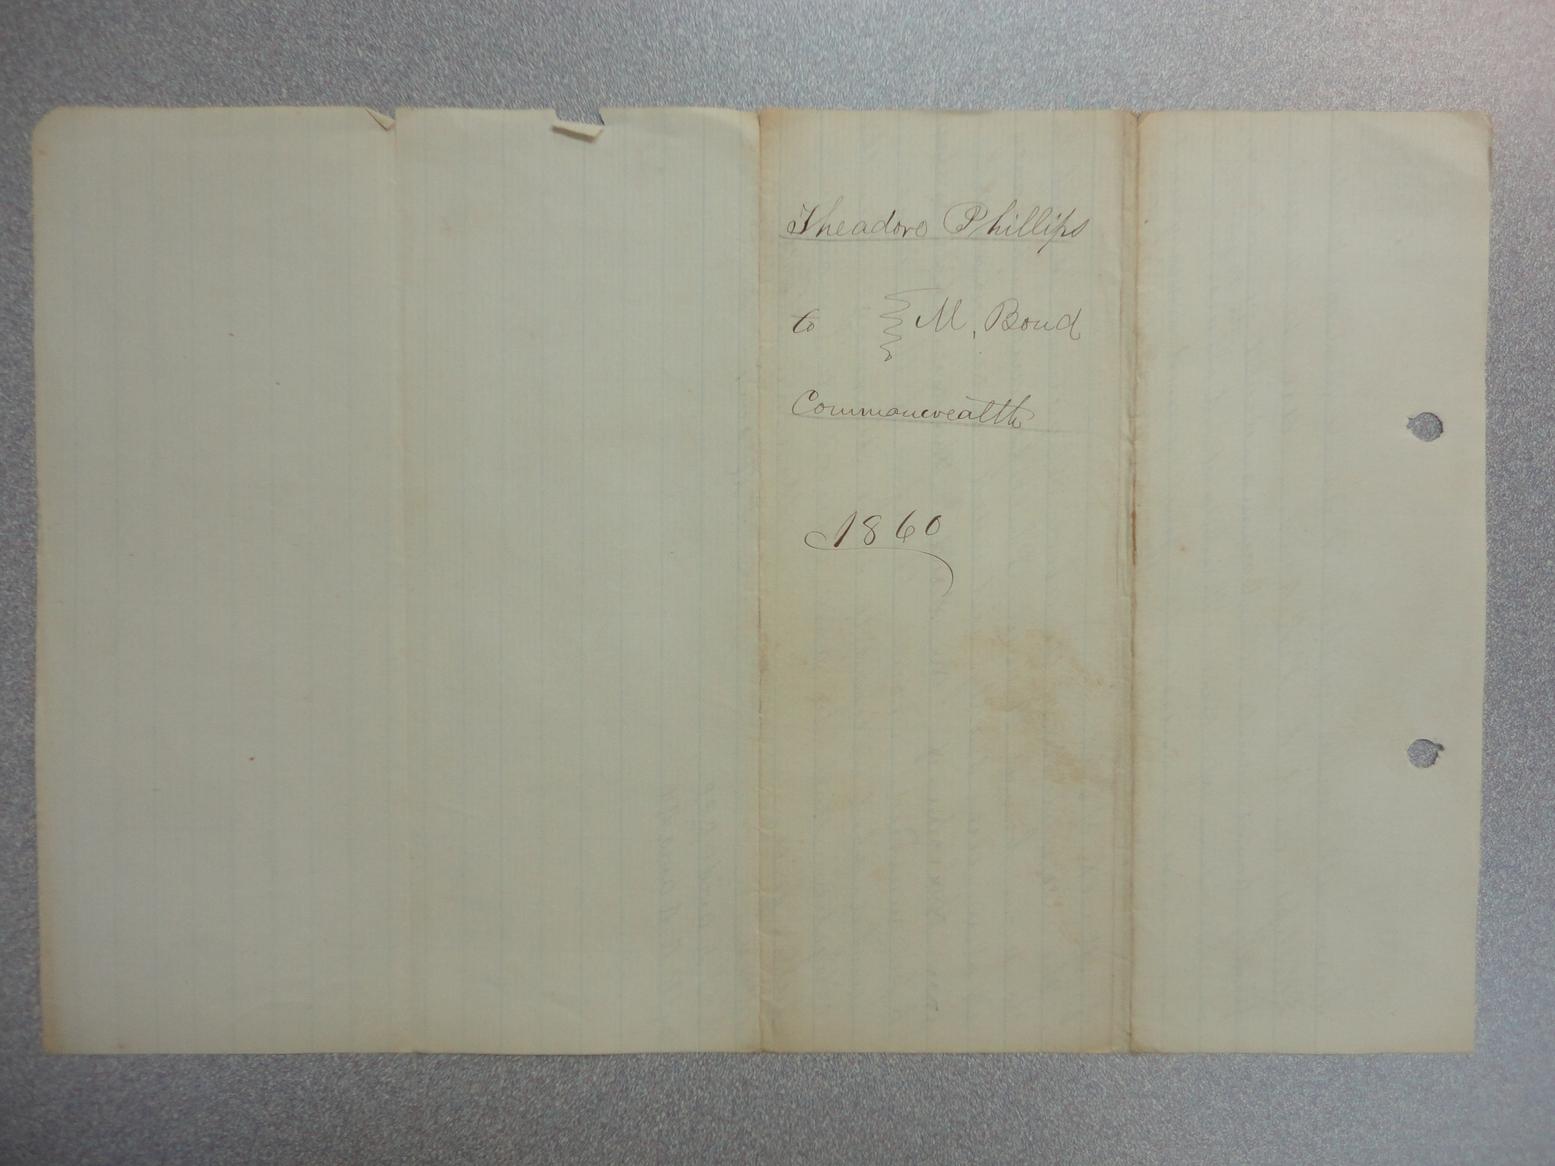 Theadore Phillips
to } M. Bond
Commonwealth
1860